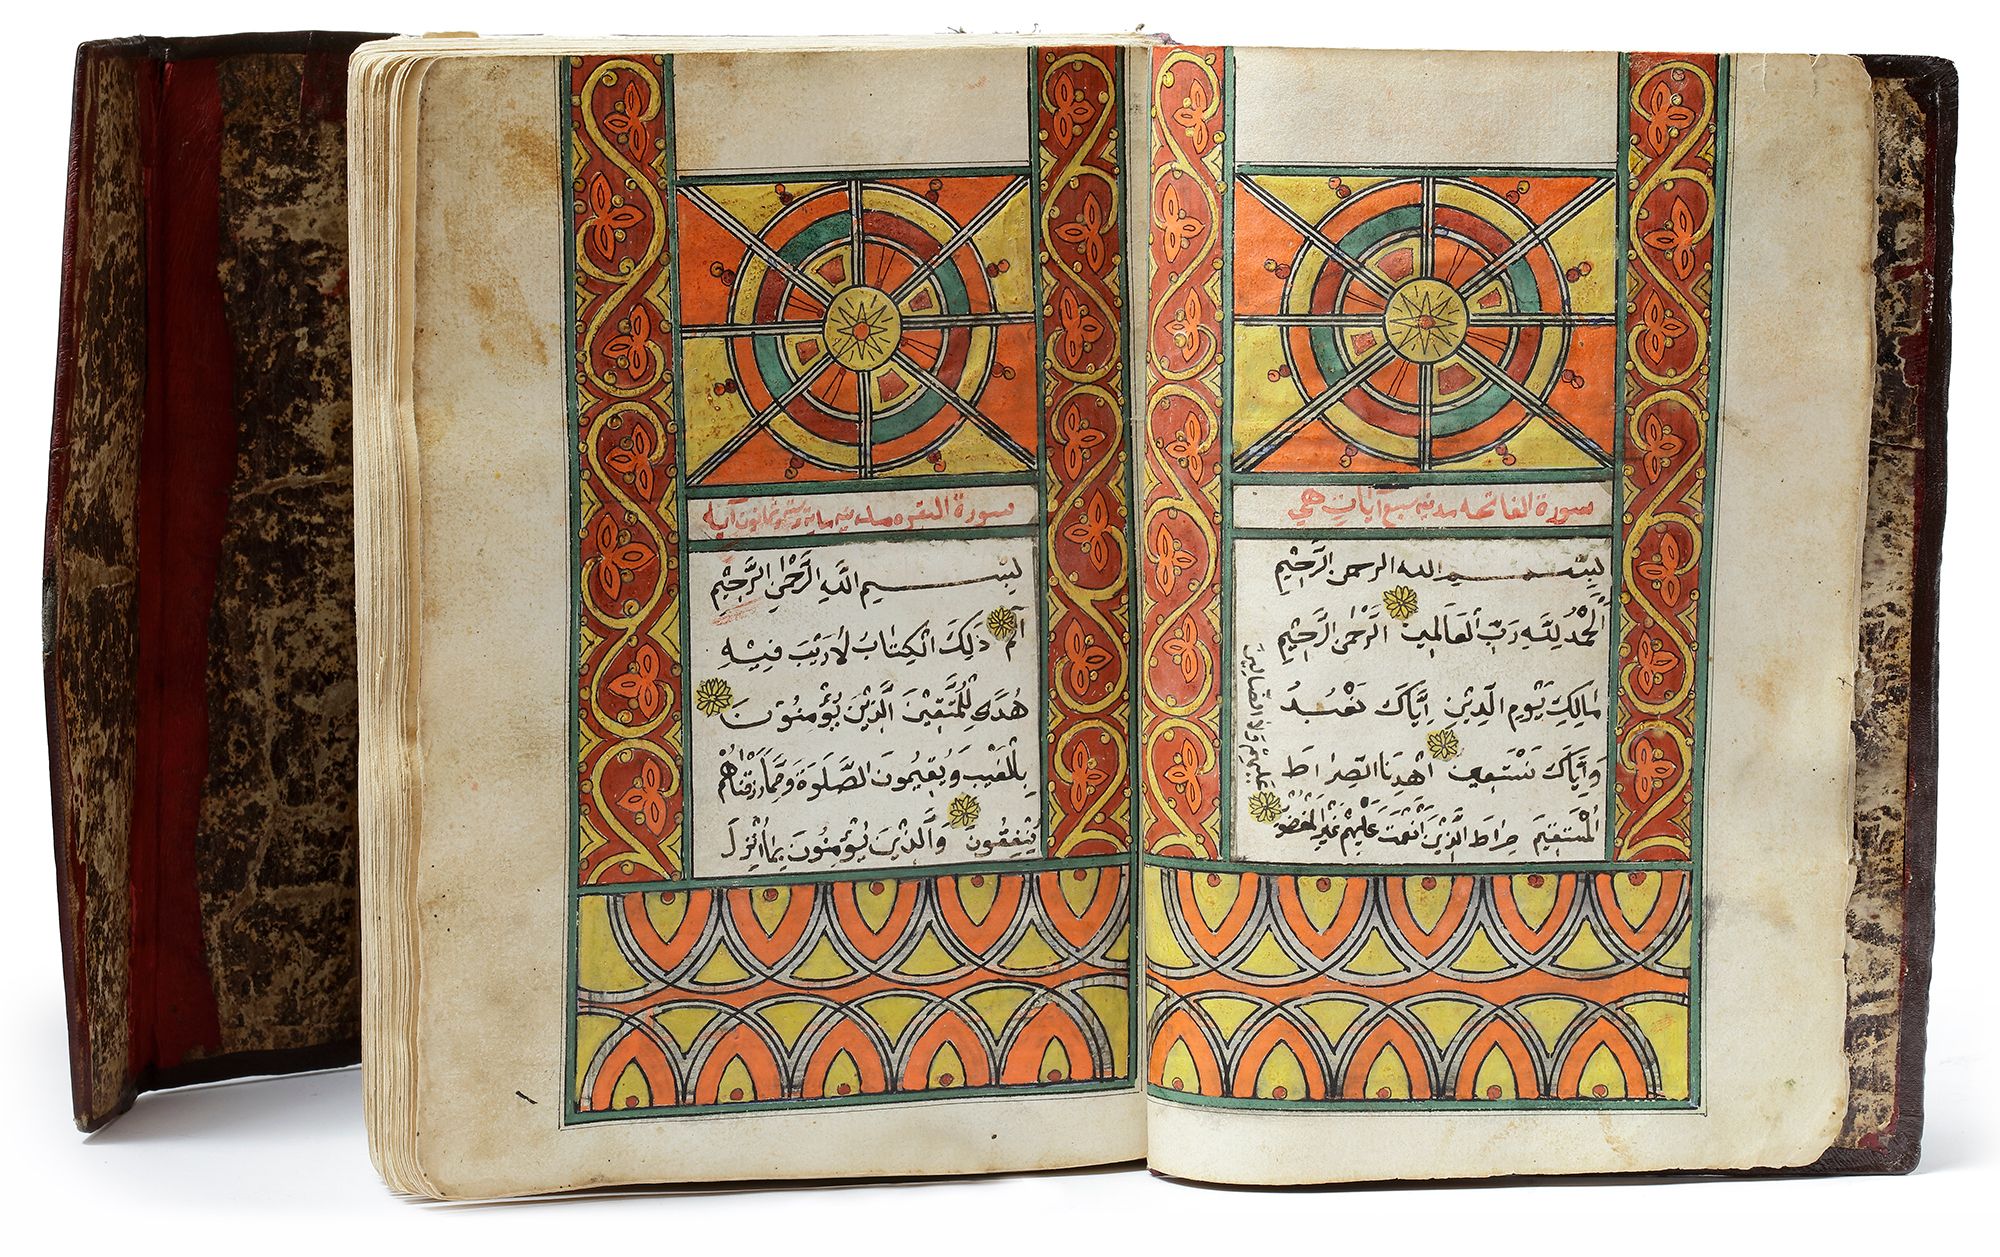 سورة الفاتحه مدنيه سبع آيات هي
بِسْمِ الله الرحمن الرَّحِيْمِ
اَلْحَمْدُ لِلّٰهِ رَبِّ الْعَالَمِيْنَ الرَّحْمٰنِ الرَّحِيْمِ
مَالِكِ يَوْمِ الدِّيْنِ اِيَّاكَ نَعْبُدُ
وَاِيَّاكَ نَسْتَعِيْنُ اهْدِنَا الصِّرَاطَ
الْمُسْتَقِيْمَ صِرَاطَ الَّذِيْنَ اَنْعَمْتَ عَلَيْهِمْ غَيْرِ الْمَغْضُوْبِ
عَلَيْهِمْ وَلَا الضَّالِّيْنَ
سورة البقره مدنيه مايه وستة وثمانون آية
بِسْمِ اللّٰهِ الرَّحْمٰنِ الرَّحِيْمِ
الٓمٓ ذَلِكَ الْكِتَابُ لَارَيْبَ فِيْهِ
هُدًى لِلْمُتَّقِيْنَ الَّذِيْنَ يُؤْمِنُوْنَ
بِالْغَيْبِ وَيُقِيْمُونَ الصَّلَوةَ وَمِمَّا رَزَقْنَاهُمْ
يُنْفِقُوْنَ وَالَّذِيْنَ يُؤْمِنُوْنَ بِمَا اُنْزِلَ